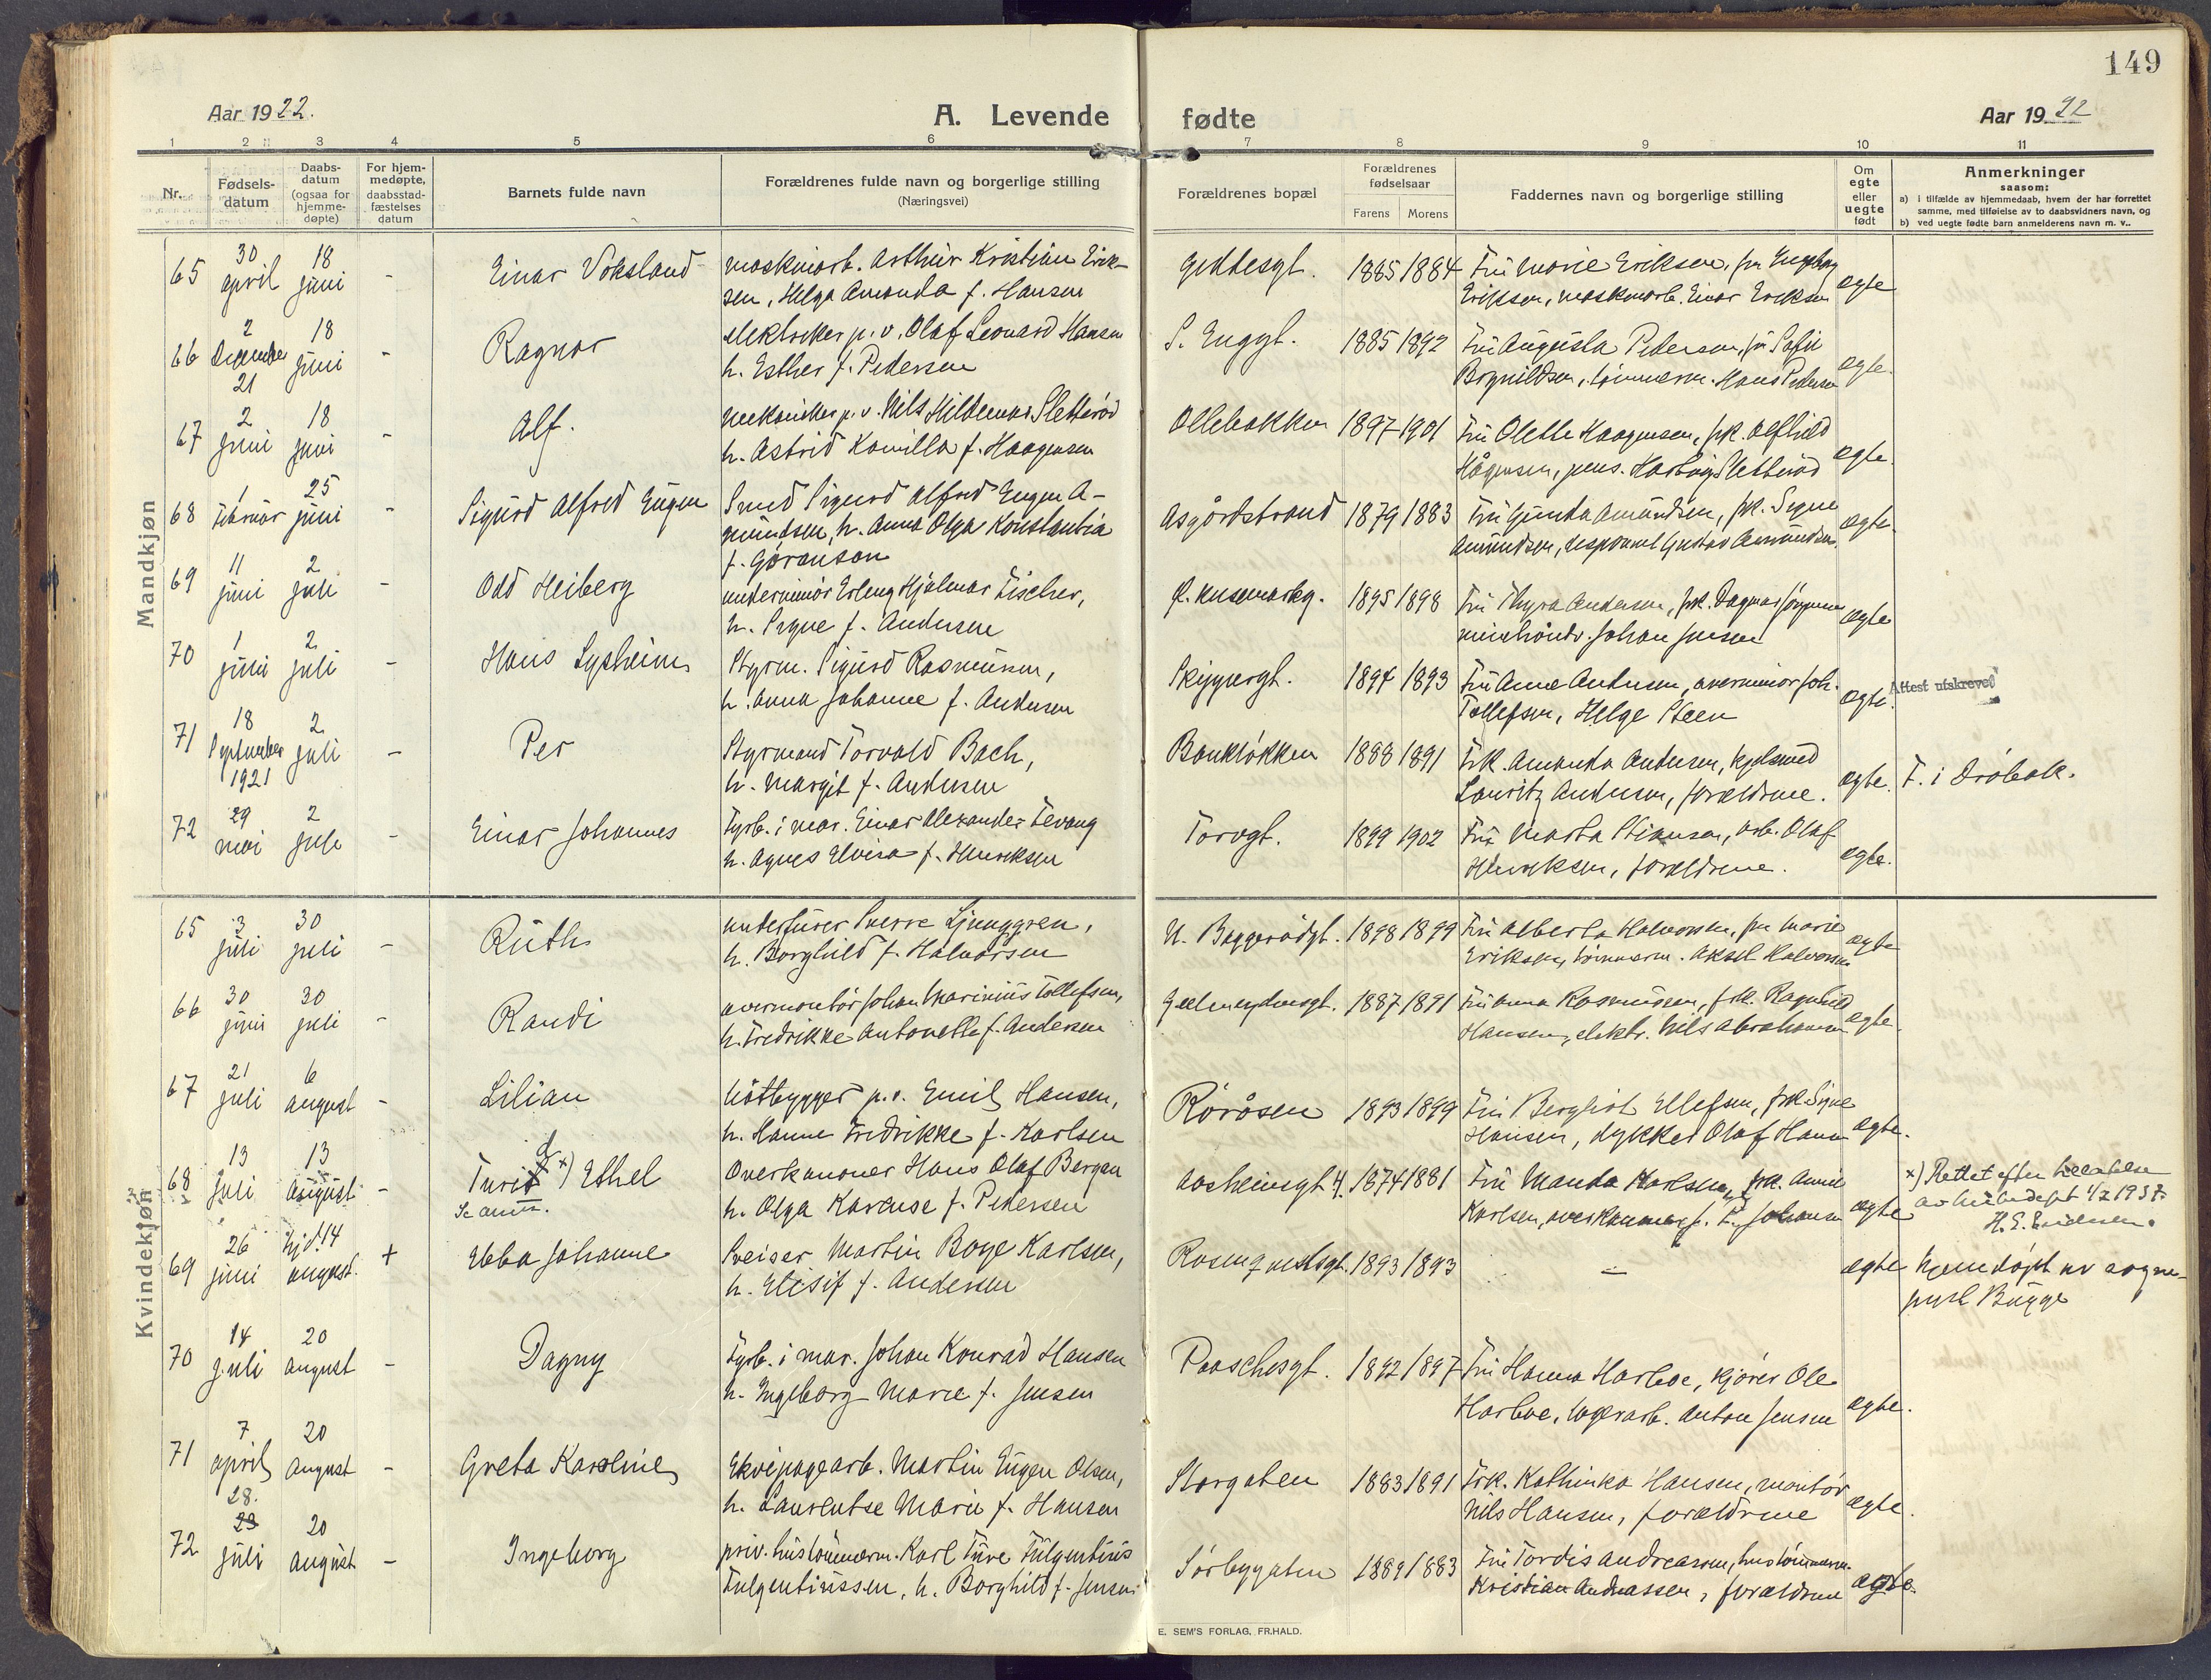 149
Aar 1922.
A. Levende fødte
Aar 1922
1 2 3 4 5 6 7 8 9 10 11
Nr.
Fødsels-
datum
Daabs-
datum
(ogsaa for
hjemme-
døpte)
For hjem-
medøpte,
daabsstad-
fæstelses
datum
Barnets fulde navn
Forældrenes fulde navn og borgerlige stilling
(Næringsvei)
Forældrenes bopæl
Forældrenes
fødselsaar
Farens Morens
Faddernes navn og borgerlige stilling
Om
egte
eller
uegte
født
Anmerkninger
saasom:
a) i tilfælde av hjemmedaab, hvem der har forrettet
samme, med tilføielse av to daabsvidners navn, og
b) ved uegte fødte barn anmelderens navn m. v..
Mandkjøn
65 30 april 18 juni - Einar Voksland
maskinarb. Arthur Kristian Erik-
sen, Helga Amanda f. Hansen
Geddesgt. 1885 1884
Fru Marie Eriksen, fru Engeborg
Eriksen, maskinarb. Einar Eriksen
egte
66 2 December 21 18 juni - Ragnar
elektriker p.v. Olaf Leonard Hansen
h. Esther f. Pedersen
S. Enggt. 1885 1892
Fru Augusta Pedersen, fru Sofie
tømmerm. Hans Pedersen
egte.
67 2 juni 18 juni - Alf.
mekaniker p.v. Nils Hildemar Sletterød
h. Astrid Kamilla f. Haagensen
Ollebakken 1897 1901
Fru Olette Haagensen, frk. Alfhild
Hågensen, pens. Hartvig Sletterød
egte.
68 1 Februar 25 juni - Sigurd Alfred Eugen
Smed Sigurd Alfred Eugen A-
mundsen, h. Anna Olga Konstantia
f. Göranson
Asgårdstrand 1879 1883
Fru Gunda Amundsen, frk. Signe
Amundsen, Gustav Amundsen.
egte.
69 11 juni 2 juli - Odd Heiberg
underminør Erling Hjalmar Fischer,
h. Signe f. Andersen
1895 1898
Fru Thyra Andersen, frk. Dagmar Jörgensen
Johan Jensen
egte
70 1 juni 2 juli - Hans Lysheim
Styrm. Sigurd Rasmussen,
h. Anna Johanne f. Andersen
Skippergt. 1894 1893
Fru Anne Andersen, overminør Joh.
Tollefsen, Helge Steen
egte.
Attest utskrevet
71 18 September 1921 2 juli - Per
Styrmand Torvald Bach,
h. Margit f. Andersen
Bankløkken 1888 1891
Frk. Amanda Andersen, kjelsmed
Lauritz Andersen, forældrene.
egte. F. i Drøbak.
72 29 mai 2 juli - Einar Johannes
Fyrb. i mar. Einar Alexander Tevang
h. Agnes Elvira f. Henriksen
Torvgt. 1899 1902
Fru Marta Stiansen, arb. Olaf
Henriksen, forældrene.
egte.
Kvindekjøn
65 3 juli 30 juli - Ruth
underfurer Sverre Ljunggren,
h. Borghild f. Halvorsen
N. Baggerødgt. 1898 1899
Fru Alberta Halvorsen, fru Marie
Eriksen, tømmerm. Aksel Halvorsen
egte
66 30 juni 30 juli - Randi
overmontør Johan Marinius Tollefsen,
h. Fredrikke Antonette f. Andersen
Geelmeydensgt. 1887 1891
Fru Anna Rasmussen, frk. Ragnhild
Hansen, elektr. Nils Abrahamsen
egte.
67 21 juli 6 august - Lilian
båtbygger p.v. Emil Hansen,
h. Hanna Fredrikke f. Karlsen
Röråsen 1893 1899
Fru Bergliot Ellefsen, frk. Signe
Hansen, dykker Olaf Hansen
egte.
68 13 juli 13 august - Turid x) Ethel
Se anm.
Overkanoner Hans Olaf Bergan
h. Olga Karense f. Pedersen
Aasheimsgt 4. 1874 1881
Fru Manda Karlsen, frk. Annie
Karlsen, overkanoner Johansen
egte
x) Rettet efter
av 1937
69 26 juni hjd. 14 august. + Ebba Johanne
Sveiser Martin Boye Karlsen,
h. Elisif f. Andersen
Rosenqvistsgt. 1893 1893
-
egte Hjemdøpt av sogne-
prest Bugge
70 14 juli 20 august - Dagny
Fyrb. i mar. Johan Konrad Hansen
h. Ingeborg Marie f. Jensen
Paaschesgt. 1892 1897
Fru Hanna Harboe, kjører Ole
Harboe, lagerarb. Anton Jensen
egte.
71 7 april 20 August - Greta Karoline
Ekvipagearb. Martin Eugen Olsen,
h. Laurentse Marie f. Hansen
Storgaten 1883 1891
Frk. Kathinka Hansen, montør
Nils Hansen, forældrene
egte.
72 28. 29 juli 20 august - Ingeborg
priv. hustømmerm. Karl Ture Fulgentius
Fulgentiussen, h. Borghild f. Jensen
Sørbygaten 1889 1883
Fru Tordis Andreassen, hustømmerm.
Kristian Andreassen, forældrene
egte.
E. SEM'S FORLAG, FR.HALD.